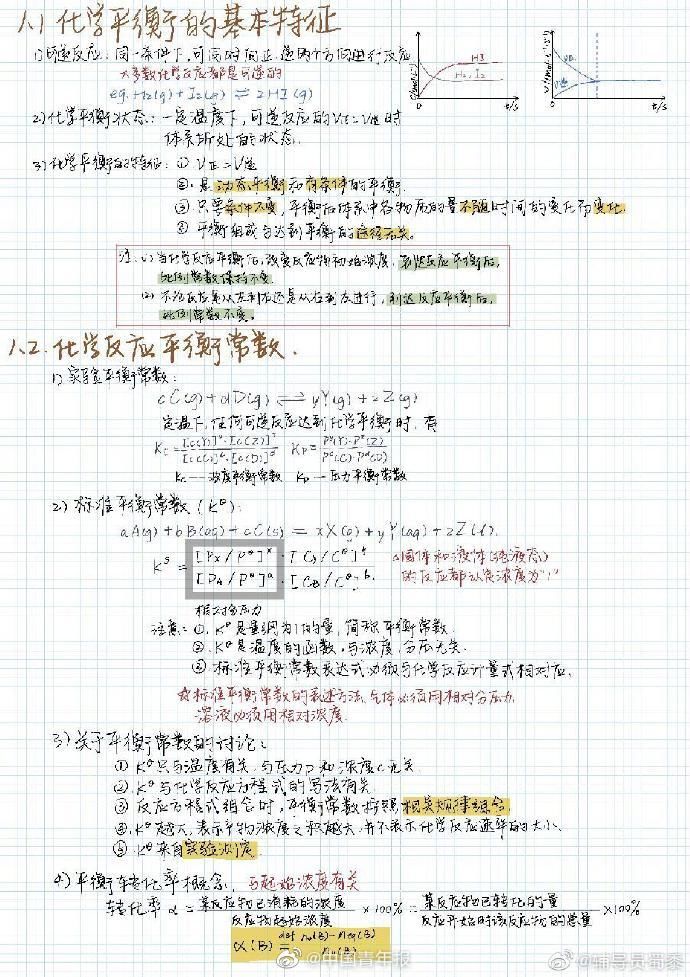 1.1 化学平衡的基本特征
1) 可逆反应: 同一条件下,可同时向正、逆两个方向进行反应
大多数化学反应都是可逆的
eg. H₂(g) + I₂(g) ⇌ 2HI(g)
HI
H₂, I₂
0 t/s
V正
V逆
0 t/s
2) 化学平衡状态: 一定温度下,可逆反应的V正=V逆时
体系所处的状态.
3) 化学平衡的特征: ① V正=V逆
②. 是动态平衡和有条件的平衡.
③. 只要条件不变, 平衡后体系中各物质的量不随时间的变化而变化.
④. 平衡组成与达到平衡的途径无关。
注: (1) 当化学反应平衡后, 改变反应物初始浓度, 到达反应平衡后,
比例常数保持不变.
(2) 不论反应是从左到右还是从右到左进行, 到达反应平衡后,
比例常数不变。
1.2. 化学反应平衡常数.
1) 实验平衡常数:
cC(g) + dD(g) ⇌ yY(g) + zZ(g)
定温下,任何可逆反应达到化学平衡时, 有
Kc = [c(Y)]^y·[c(Z)]^z / [c(C)]^c·[c(D)]^d Kp = p^y(Y)·p^z(Z) / p^c(C)·p^d(D)
Kc — 浓度平衡常数 Kp — 压力平衡常数
2) 标准平衡常数 (K^θ):
aA(g) + bB(aq) + cC(s) = xX(g) + yY(aq) + zZ(l).
K^θ = [Px/P^θ]^x·[Cy/C^θ]^y / [PA/P^θ]^a·[CB/C^θ]^b.
固体和液体(纯液态)
的反应都认定浓度为"1"
相对分压力
注意: ①. K^θ是量纲为1的量, 简称平衡常数.
②. K^θ是温度的函数, 与浓度、分压无关.
③. 标准平衡常数表达式必须与化学反应计量式相对应.
☆标准平衡常数的表述方法, 气体必须用相对分压力
溶液必须用相对浓度.
3) 关于平衡常数的讨论:
① K^θ只与温度有关, 与压力p和浓度c无关.
②. K^θ与化学反应方程式的写法有关.
③ 反应方程式组合时, 平衡常数按照相关规律组合.
④. K^θ越大, 表示产物浓度之积越大, 并不表示化学反应速率的大小.
⑤. K^θ来自实验测定.
4) 平衡转化率概念. 与起始浓度有关
转化率 α = 某反应物已消耗的浓度 / 反应物起始浓度 ×100% = 某反应物已转化的量 / 反应开始时该反应物的总量 ×100%
α(B) def= n₀(B)-neq(B) / n₀(B)
@中国青年报
@辅导员蜀黍